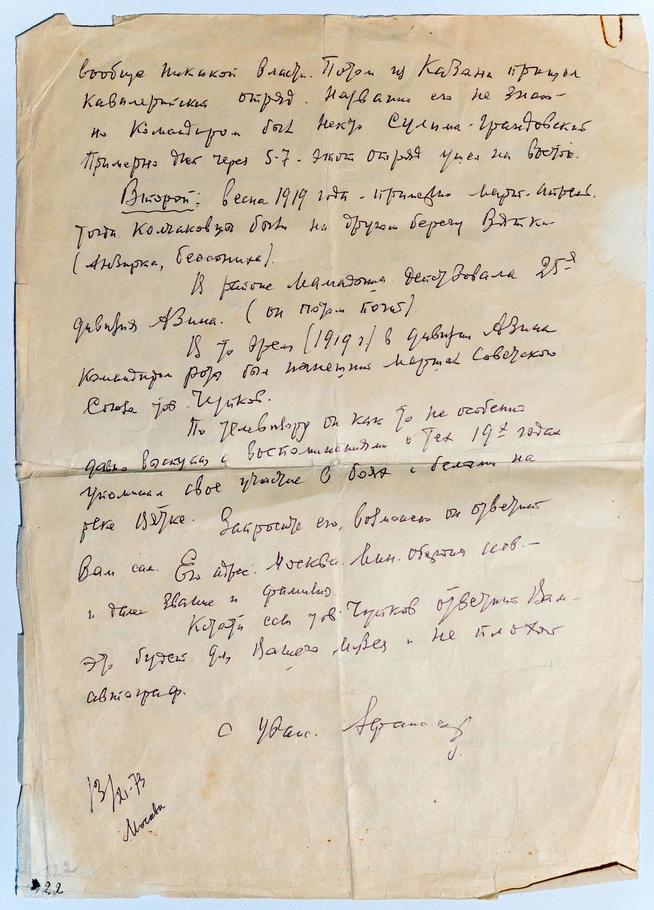 вообще никакой власти. Потом из Казани пришел
кавалерийский отряд. Название его не знаю -
но Командиром был некто Сулима-Грандовский
Примерно дня через 5-7 - этот отряд ушел на восток.
Второй: весна 1919 года - примерно март-апрель.
Тогда Колчаковцы были на другом берегу Вятки
(                    ).
В районе Мамадыша действовала 25-я
дивизия Азина. (он потом погиб)
В то время (1919 г) в дивизии Азина
Командиром роты был нынешний Маршал Советского
Союза тов. Чуйков.
По телевизору он как то не особенно
давно выступал с воспоминаниями о тех 19х годах
упоминал свое участие в боях с белыми на
реке Вятке. Запросите его, возможно он ответит
Вам сам. Его адрес: Москва. Мин. обороны
и далее звание и фамилию
Кстати если тов. Чуйков ответит Вам -
это будет для Вашего музея и не плохой
автограф.
С уваж.
13/                73
Москва
22